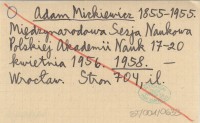 Adam Mickiewicz 1855-1955.
Międzynarodowa Sesja Naukowa
Polskiej Akademii Nauk 17-20
kwietnia 1956. 1958. —
Wrocław. Stron 704, il.